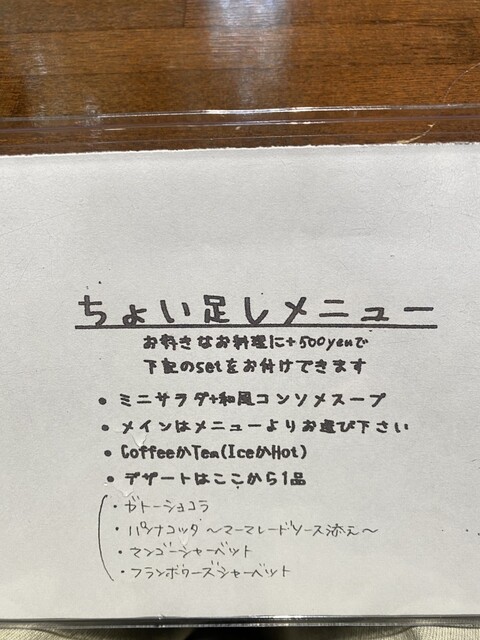 ちょい足しメニュー
お好きなお料理に+500yenで
下記のsetをお付けできます
• ミニサラダ+和風コンソメスープ
• メインはメニューよりお選び下さい
• CoffeeかTea(IceかHot)
• デザートはここから1品
・ガトーショコラ
・パンナコッタ 〜マーマレードソース添え〜
・マンゴーシャーベット
・フランボワーズシャーベット